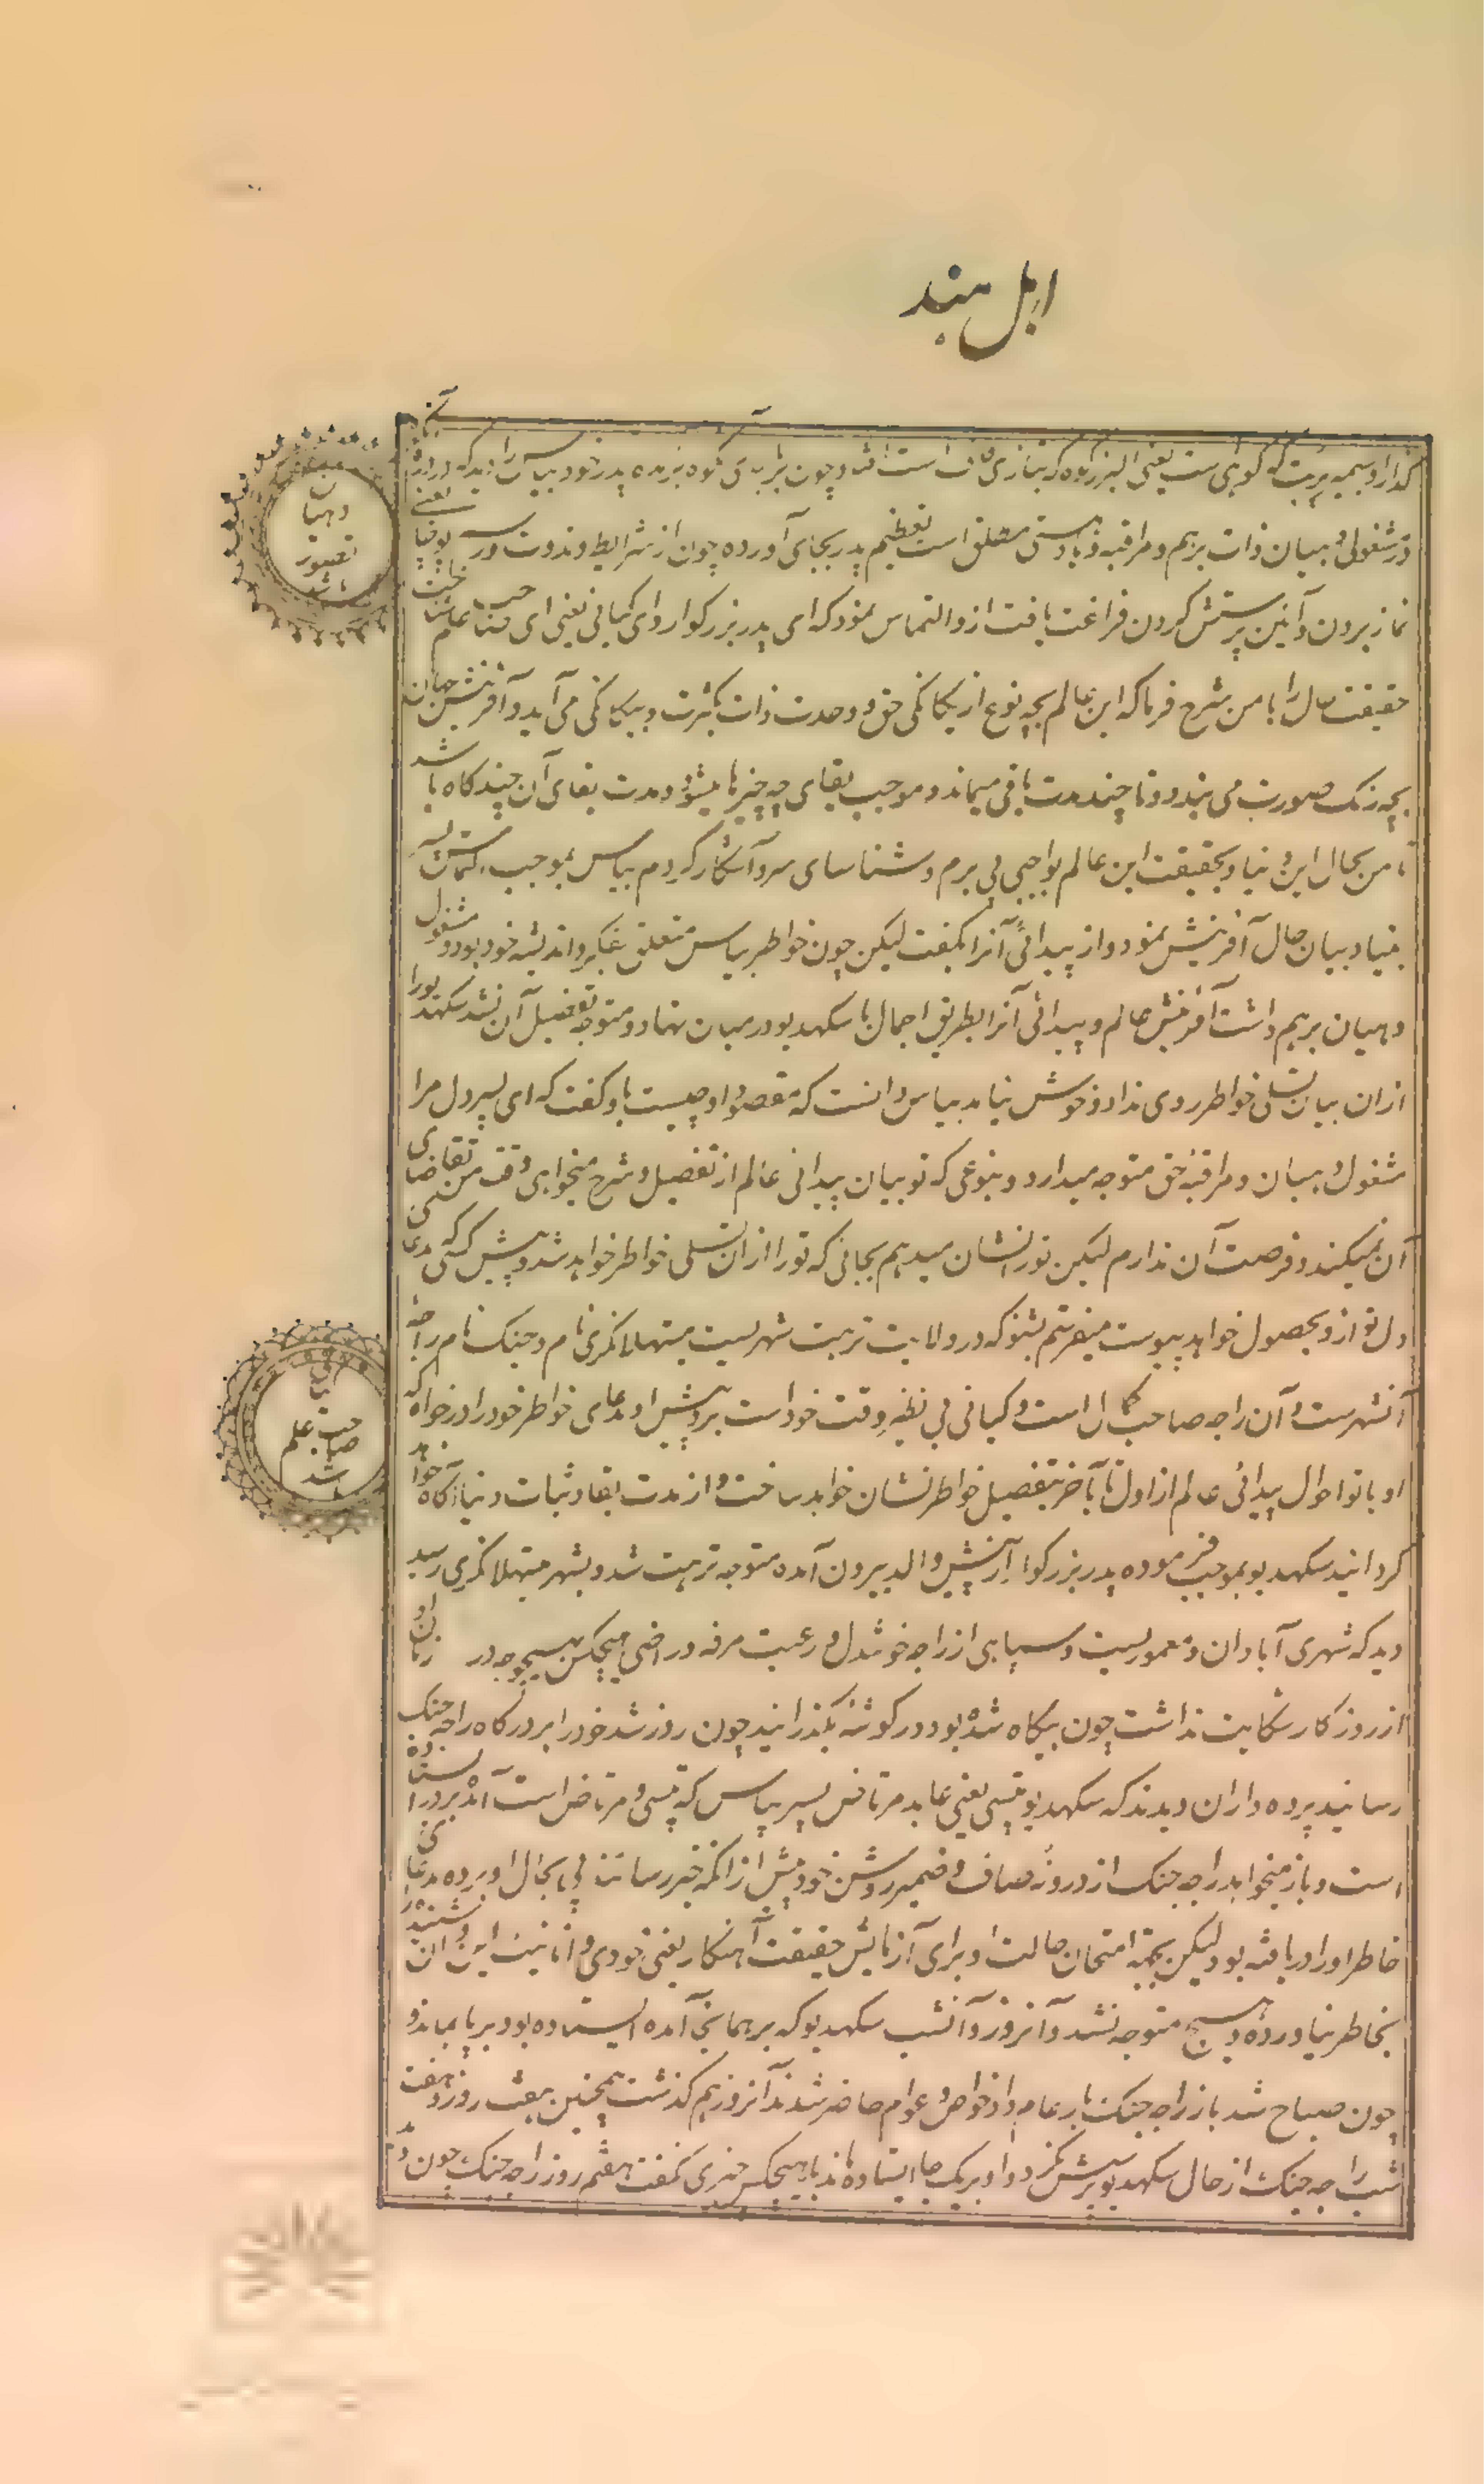 اهل هند
گذارد و سمیر پربت که کوهی ست یعنی البرز کوه که بتازی قاف است و چون بر بالای کوه نزد پدر خود بیاس را دید که در
در مشغولی دهیان ذات برهم و مراقبه و یاد هستی مطلق است تعظیم پدر بجای آورده چون از شرایط دندوت و رسم پوجا یعنی
نماز بردن و آئین پرستش کردن فراغت یافت ازو التماس نمود که ای پدر بزرگوار و ای گیانی یعنی ای صاحب علم
حقیقت حال را با من شرح فرما که این عالم بچه نوع از یگانگی حق و وحدت ذات بکثرت و بیگانگی می آید و آفرینش جهان
بچه رنگ صورت می بندد و تا چند مدت باقی میماند و موجب بقای چه چیزها میشود و مدت بقای آن چند گاه باشد
تا من بحال این دنیا و بحقیقت این عالم بواجبی پی برم و شناسای سر و آشکار گردم بیاس بموجب التماس پسر
بنیاد بیان حال آفرینش نمود و از پیدائی آنرا بگفت لیکن چون خواطر بیاس متعلق بفکر و اندیشه خود بود و مشغول
دهیان برهم داشت آفرینش عالم و پیدائی آنرا بطریق اجمال با سکهدیو در میان نهاد و متوجه تفصیل آن نشد سکهدیو را
ازان بیان تسلی خواطر روی نداد و خوش نیامد بیاس دانست که مقصود او چیست باو گفت که ای پسر دل مرا
مشغولی دهیان و مراقبه حق متوجه میدارد و بنوعی که تو بیان پیدائی عالم از تفصیل و شرح میخواهی وقت من تقاضای
آن نمیکند و فرصت آن ندارم لیکن تو را نشان میدهم بجائی که تو را ازان تسلی خواطر خواهد شد و پیش کسی که مدعای
دل تو ازو بحصول خواهد پیوست میفرستم بشنو که در ولایت ترهت شهریست میتهلا نگری نام و جنک نام راجه
آنشهرست و آن راجه صاحب کمال است و گیانی بی نظیر وقت خود است برو پیش او مدعای خواطر خود را درخواه که
او با تو احوال پیدائی عالم از اول تا آخر بتفصیل خواطر نشان خواهد ساخت و از مدت بقا و ثبات دنیا آگاه خواهد
گردانید سکهدیو بموجب فرموده پدر بزرگوار از پیش والد بیرون آمده متوجه ترهت شد و بشهر میتهلا نگری رسید
دید که شهری آبادان و معموریست و سپاهی از راجه خوشدل و رعیت مرفه و راضی هیچکس بهیچوجه در آن زمان
از روزگار شکایت نداشت چون بیگاه شده بود در گوشه بگذرانید چون روز شد خود را بر درگاه راجه جنک
رسانید پرده داران دیدند که سکهدیو تپسی یعنی عابد مرتاض پسر بیاس که تپسی و مرتاض است آمده بر در استاده
است و بار میخواهد راجه جنک از درونه صاف و ضمیر روشن خود پیش از انکه خبر رسانند پی بحال او برده مدعای
خاطر او را دریافته بود لیکن بجهة امتحان حالت او برای آزمایش حقیقت آهنکار یعنی خودی و انانیت این و آن شنیده را
بخاطر نیاورده و هیچ متوجه نشد و آنروز و آنشب سکهدیو که بر همانجا آمده ایستاده بود بر پا بماند و
چون صباح شد باز راجه جنک بار عام داد و خواص و عوام حاضر شدند آنروز هم گذشت همچنین هفت روز و هفت
شب راجه جنک از حال سکهدیو پرسش نکرد و او بر یک جا ایستاده ماند با هیچکس چیزی نگفت هفتم روز راجه جنک چون
دهیان
تصور
باشد
گیانی
صاحب علم
باشد